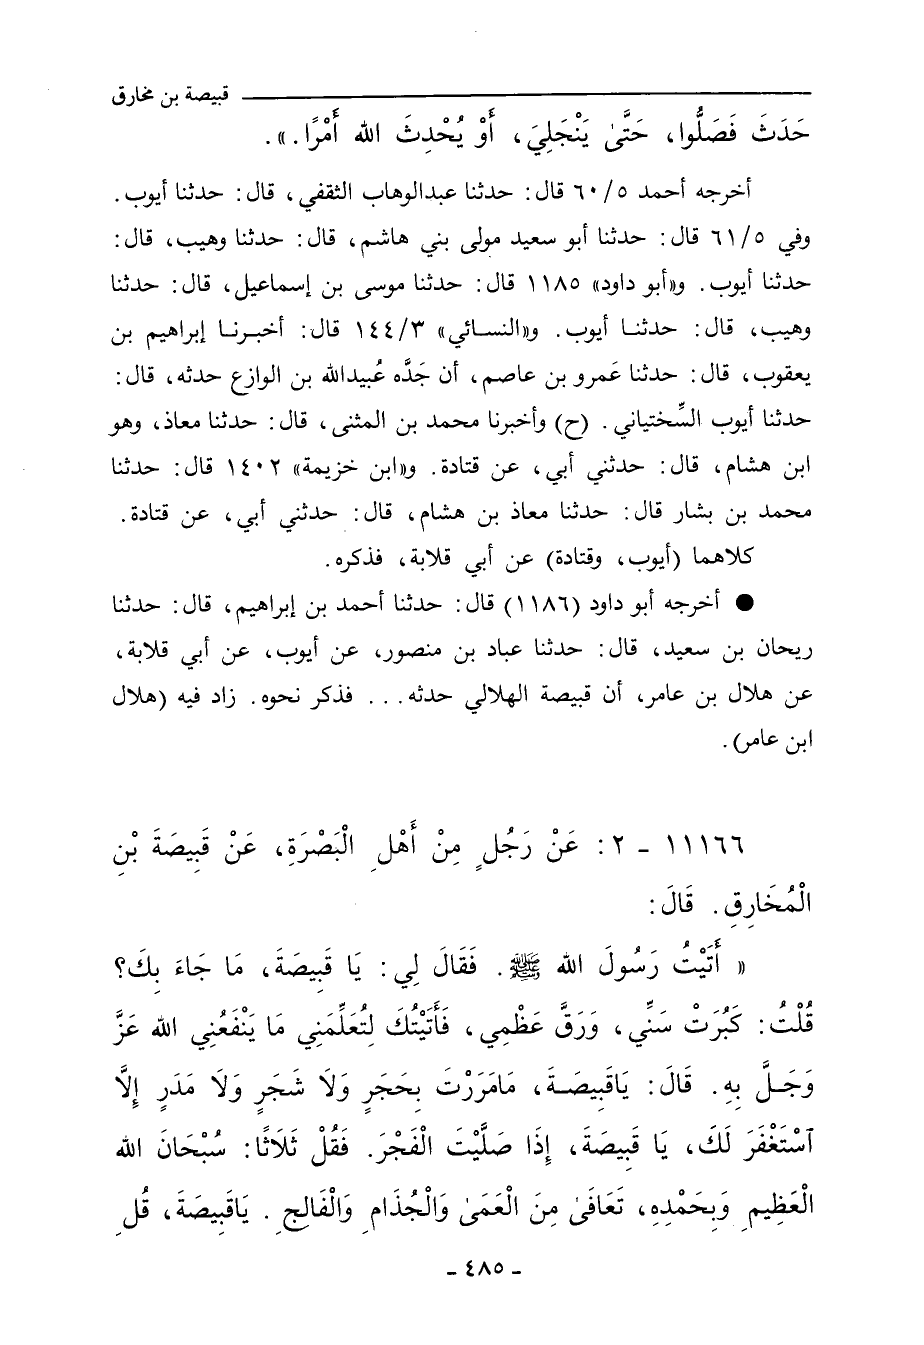 قبيصة بن مخارق
حَدَثَ فَصَلُّوا، حَتَّىٰ يَنْجَلِيَ، أَوْ يُحْدِثَ الله أَمْرًا.».
أخرجه أحمد ٦٠/٥ قال: حدثنا عبدالوهاب الثقفي، قال: حدثنا أيوب.
وفي ٦١/٥ قال: حدثنا أبو سعيد مولى بني هاشم، قال: حدثنا وهيب، قال:
حدثنا أيوب. و«أبو داود» ١١٨٥ قال: حدثنا موسى بن إسماعيل، قال: حدثنا
وهيب، قال: حدثنا أيوب. و«النسائي» ١٤٤/٣ قال: أخبرنا إبراهيم بن
يعقوب، قال: حدثنا عَمرو بن عاصم، أن جَدَّه عُبيدالله بن الوازع حدثه، قال:
حدثنا أيوب السِّختياني. (ح) وأخبرنا محمد بن المثنى، قال: حدثنا معاذ، وهو
ابن هشام، قال: حدثني أبي، عن قتادة. و«ابن خزيمة» ١٤٠٢ قال: حدثنا
محمد بن بشار قال: حدثنا معاذ بن هشام، قال: حدثني أبي، عن قتادة.
كلاهما (أيوب، وقتادة) عن أبي قلابة، فذكره.
● أخرجه أبو داود (١١٨٦) قال: حدثنا أحمد بن إبراهيم، قال: حدثنا
ريحان بن سعيد، قال: حدثنا عباد بن منصور، عن أيوب، عن أبي قلابة،
عن هلال بن عامر، أن قبيصة الهلالي حدثه... فذكر نحوه. زاد فيه (هلال
ابن عامر).
١١١٦٦ - ٢: عَنْ رَجُلٍ مِنْ أَهْلِ الْبَصْرَةِ، عَنْ قَبِيصَةَ بْنِ
الْمُخَارِقِ. قَالَ:
« أَتَيْتُ رَسُولَ الله ﷺ. فَقَالَ لِي: يَا قَبِيصَةَ، مَا جَاءَ بِكَ؟
قُلْتُ: كَبُرَتْ سَنِّي، وَرَقَّ عَظْمِي، فَأَتَيْتُكَ لِتُعَلِّمَنِي مَا يَنْفَعُنِي الله عَزَّ
وَجَلَّ بِهِ. قَالَ: يَاقَبِيصَةَ، مَامَرَرْتَ بِحَجَرٍ وَلَا شَجَرٍ وَلَا مَدَرٍ إِلَّا
آسْتَغْفَرَ لَكَ، يَا قَبِيصَةَ، إِذَا صَلَّيْتَ الْفَجْرَ. فَقُلْ ثَلَاثًا: سُبْحَانَ الله
الْعَظِيمِ وَبِحَمْدِهِ، تَعَافَىٰ مِنَ الْعَمَىٰ وَالْجُذَامِ وَالْفَالِجِ. يَاقَبِيصَةَ، قُلِ
- ٤٨٥ -